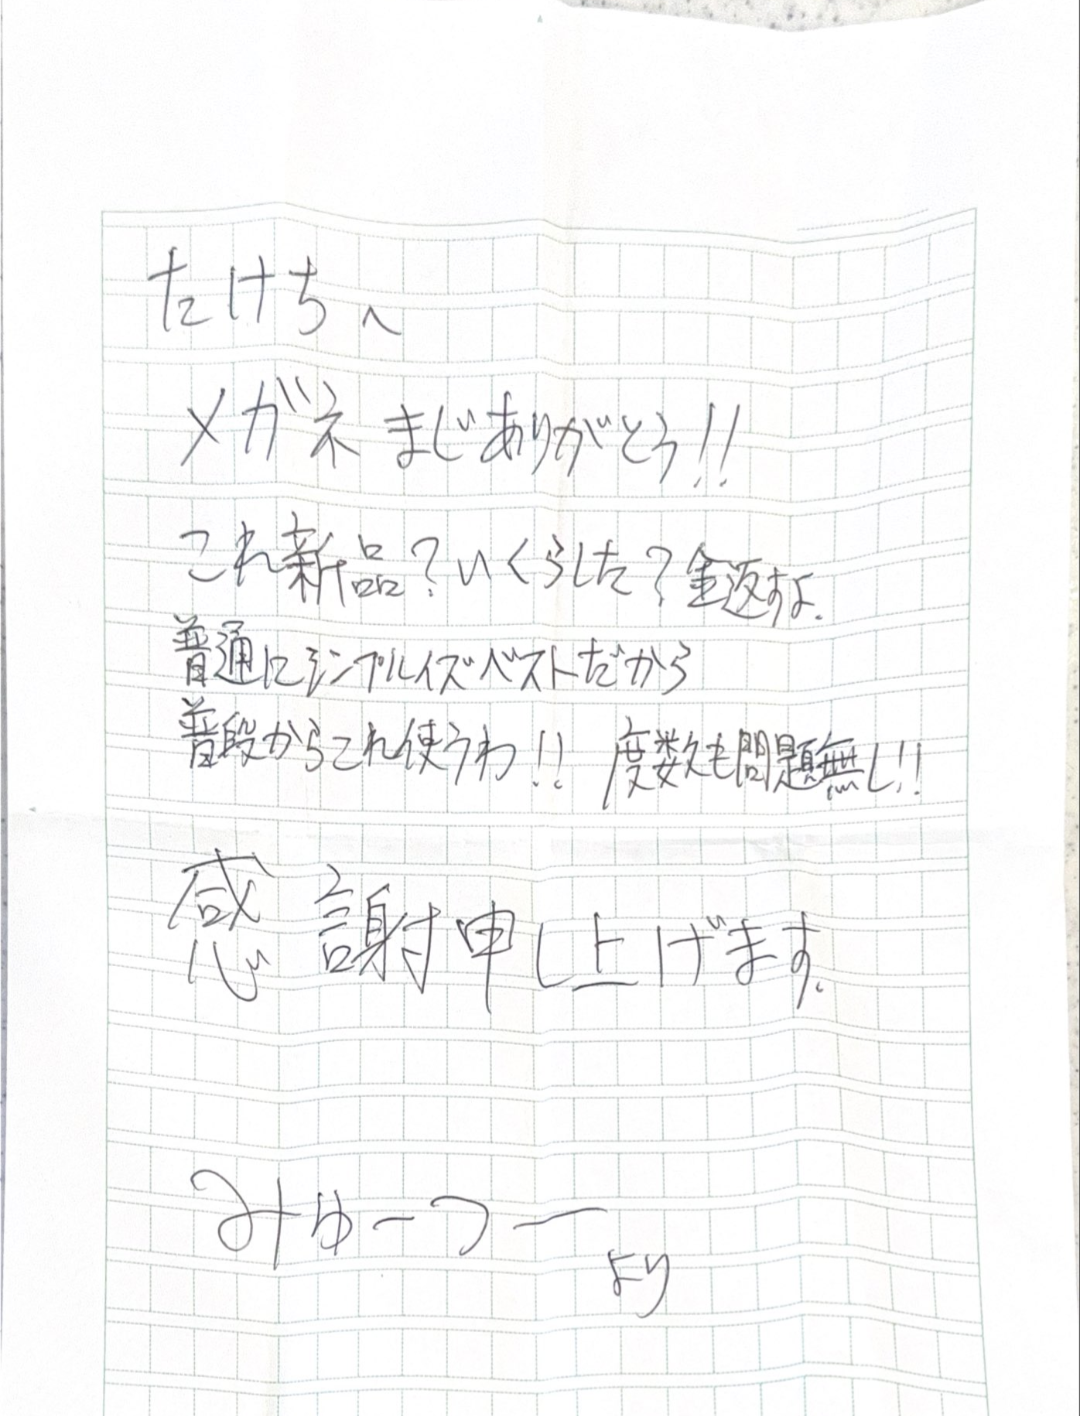 たけちへ
メガネまじありがとう!!
これ新品?いくらした?金返すよ.
普通にシンプルイズベストだから
普段からこれ使うわ!! 度数も問題無し!!
感謝申し上げます.
みゅーつー
より